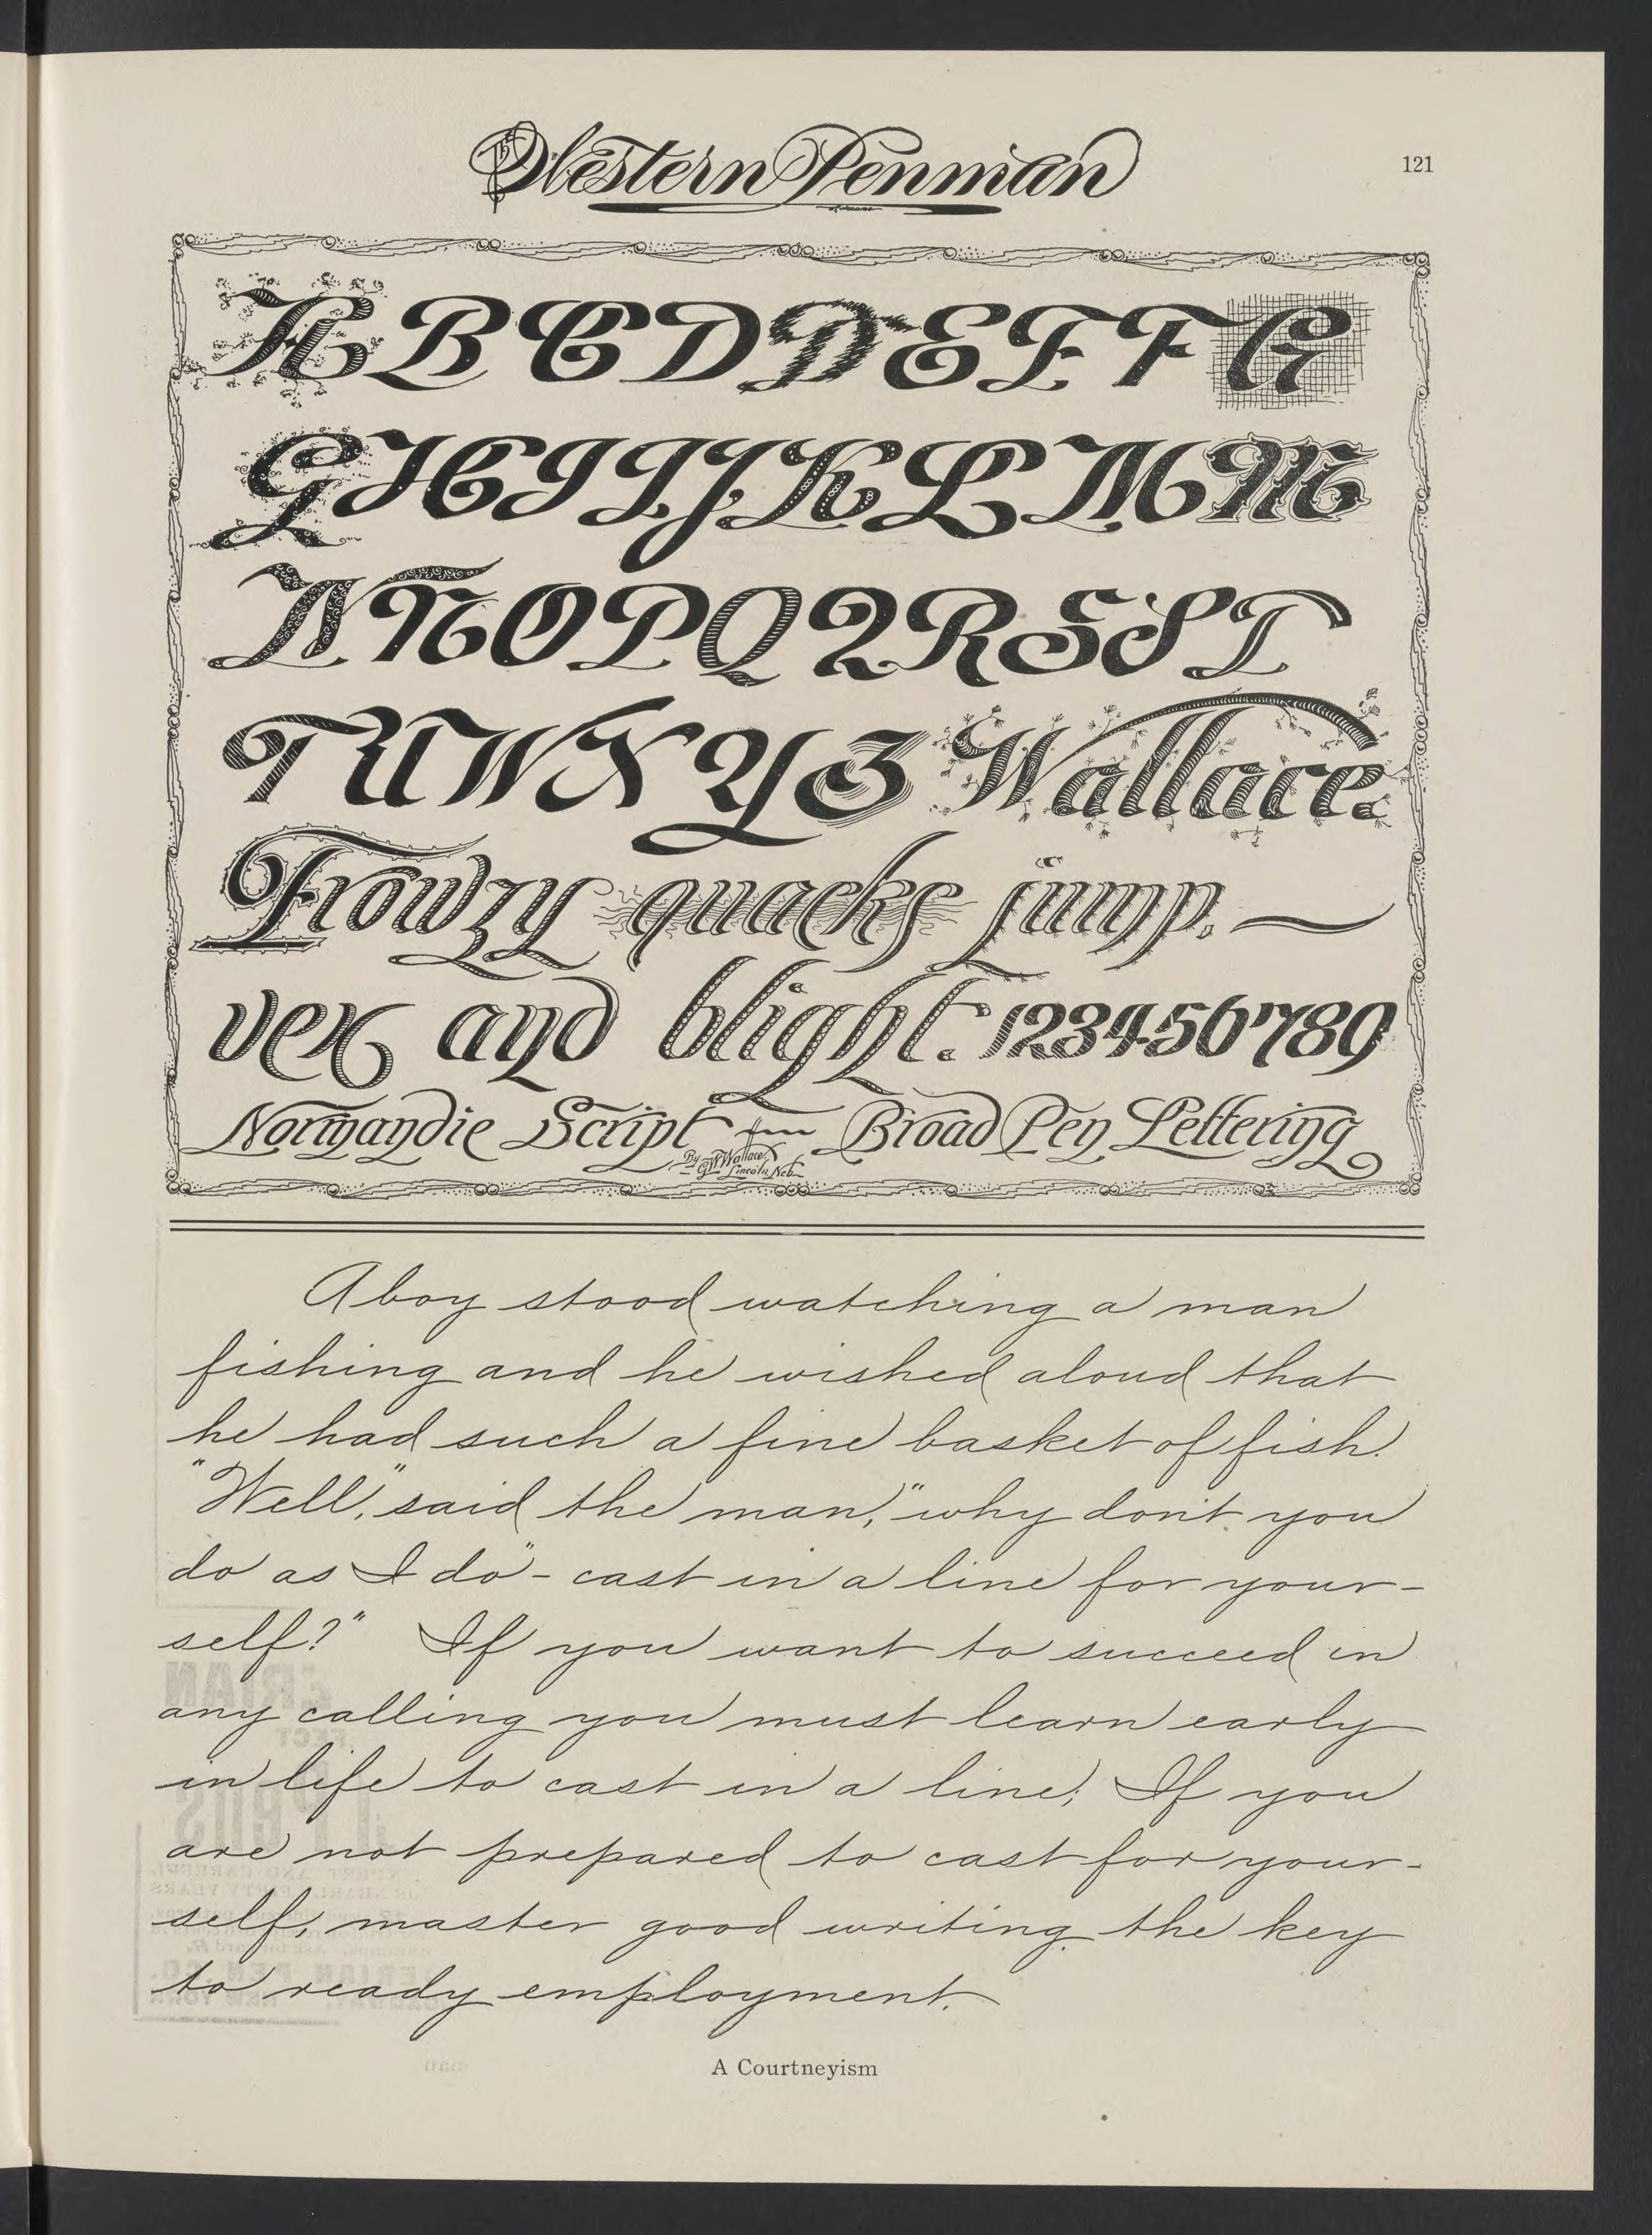 The Western Penman
121
A B C D D E F F G
G H I I J K L M M
N N O P Q Q R S S T
T U W X Y Z Wallace.
Frowzy quacks jump.
vex and blight. 123456789
Normandie Script Broad Pen Lettering
By
G W Wallace,
Lincoln, Neb.
A boy stood watching a man
fishing and he wished aloud that
he had such a fine basket of fish.
"Well," said the man, "why don't you
do as I do" - cast in a line for your-
self?" If you want to succeed in
any calling you must learn early
in life to cast in a line; If you
are not prepared to cast for your-
self, master good writing, the key
to ready employment.
A Courtneyism